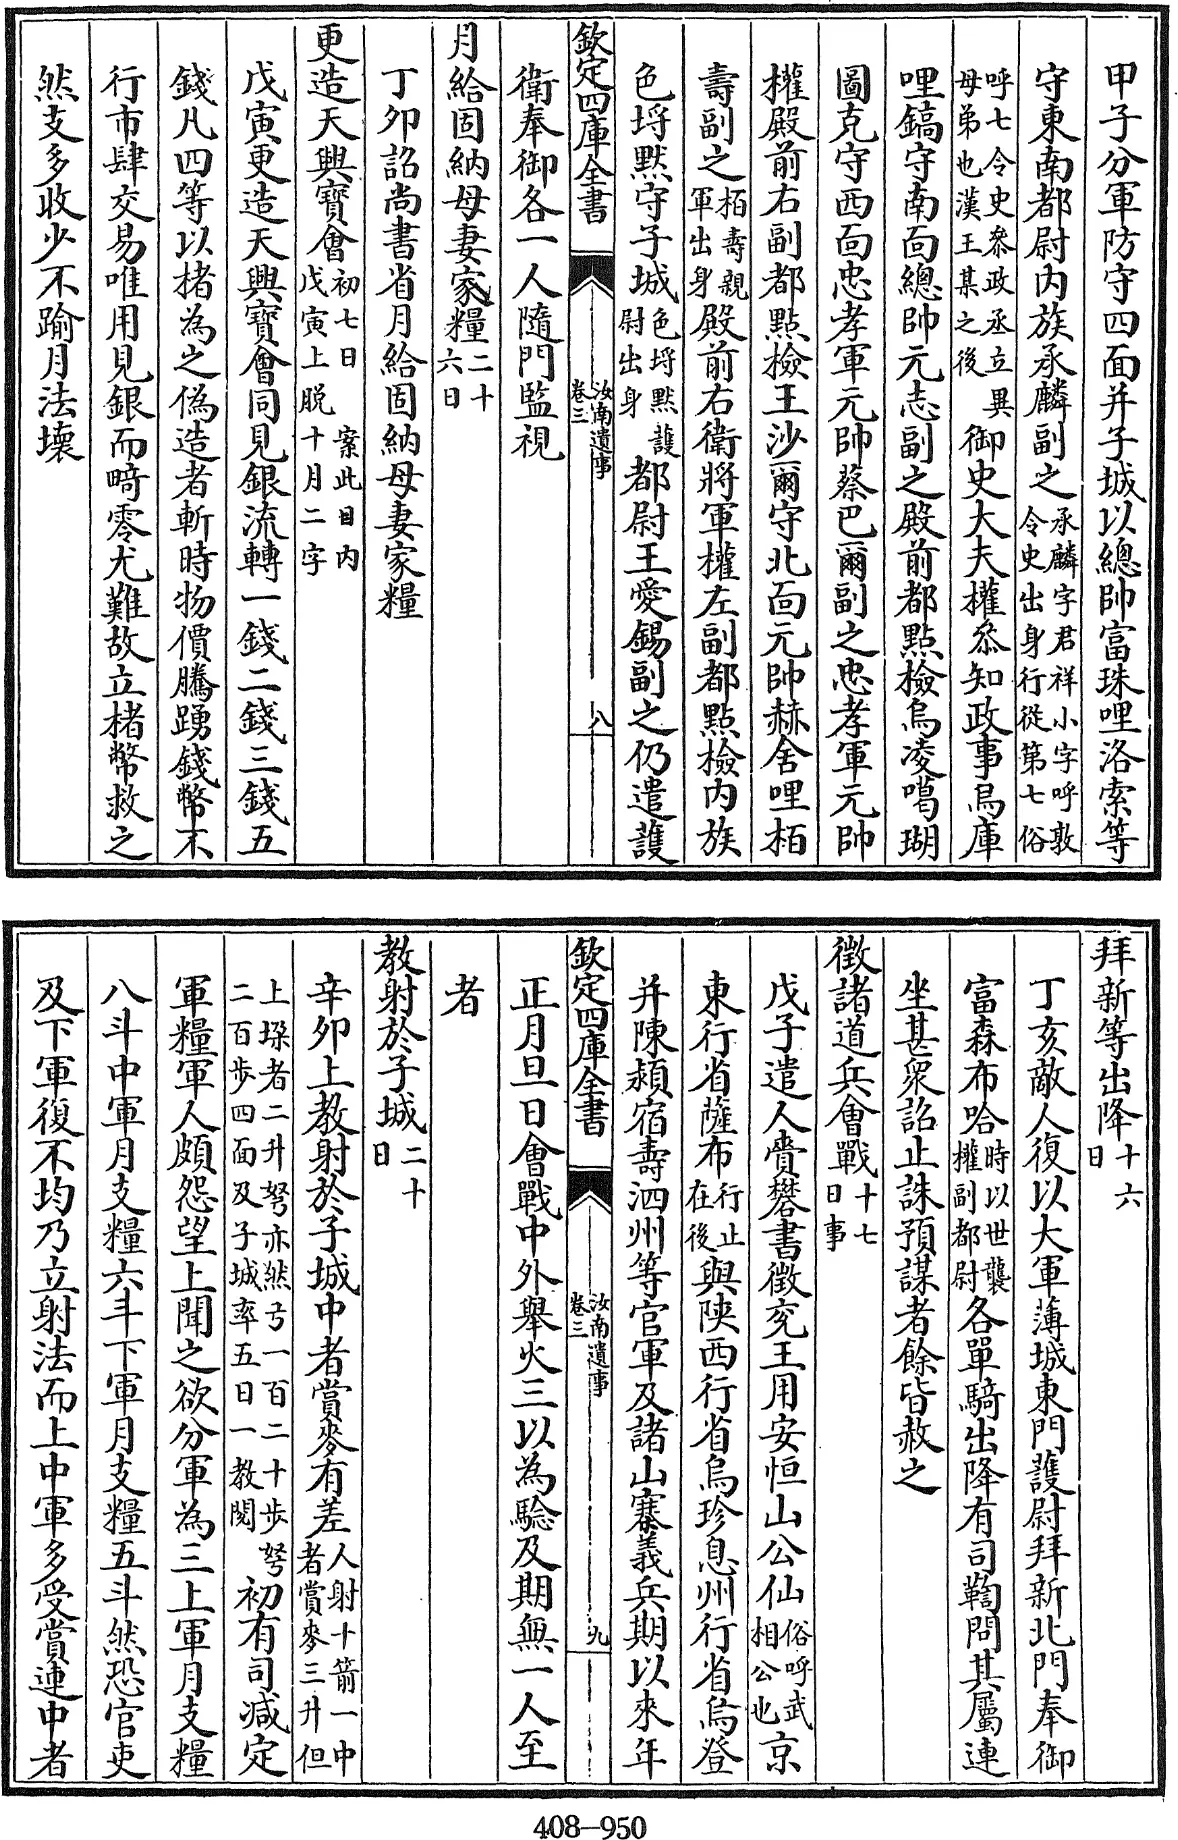 甲子分軍防守四面并子城以總帥富珠哩洛索等
守東南都尉内族承麟副之承麟字君祥小字呼敦令史出身行從第七俗
呼七令史叅政丞立異母弟也漢王某之後御史大夫權叅知政事烏庫
哩鎬守南面總帥元志副之殿前都點檢烏凌噶瑚
圖克守西面忠孝軍元帥蔡巴爾副之忠孝軍元帥
權殿前右副都點檢王沙爾守北面元帥赫舍哩栢
壽副之栢壽親軍出身殿前右衛將軍權左副都點檢内族
色埒黙守子城色埒黙䕶尉出身都尉王愛錫副之仍遣䕶
欽定四庫全書
汝南遺事
卷三
八
衛奉御各一人隨門監視
月給固納母妻家糧二十六日
丁夘詔尚書省月給固納母妻家糧
更造天興寶㑹初七日案此日内戊寅上脱十月二字
戊寅更造天興寶㑹同見銀流轉一錢二錢三錢五
錢凡四等以楮為之偽造者斬時物價騰踴錢幣不
行市肆交易唯用見銀而畸零尤難故立楮幣救之
然支多收少不踰月法壊
拜新等出降十六日
丁亥敵人復以大軍薄城東門䕶尉拜新北門奉御
富森布哈時以世襲權副都尉各單騎出降有司鞫問其屬連
坐甚衆詔止誅預謀者餘皆赦之
徴諸道兵㑹戰十七日事
戊子遣人賫礬書徴兖王用安恒山公仙俗呼武相公也京
東行省薩布行止在後與陜西行省烏珍息州行省烏登
并陳潁宿壽泗州等官軍及諸山寨義兵期以來年
欽定四庫全書
汝南遺事
卷三
九
正月旦日㑹戰中外舉火三以為驗及期無一人至
者
教射於子城二十日
辛夘上教射於子城中者賞麥有差人射十箭一中者賞麥三升但
上垜者二升弩亦然弓一百二十步弩二百步四面及子城率五日一教閲初有司減定
軍糧軍人頗怨望上聞之欲分軍為三上軍月支糧
八斗中軍月支糧六斗下軍月支糧五斗然恐官吏
及下軍復不均乃立射法而上中軍多受賞連中者
408—950